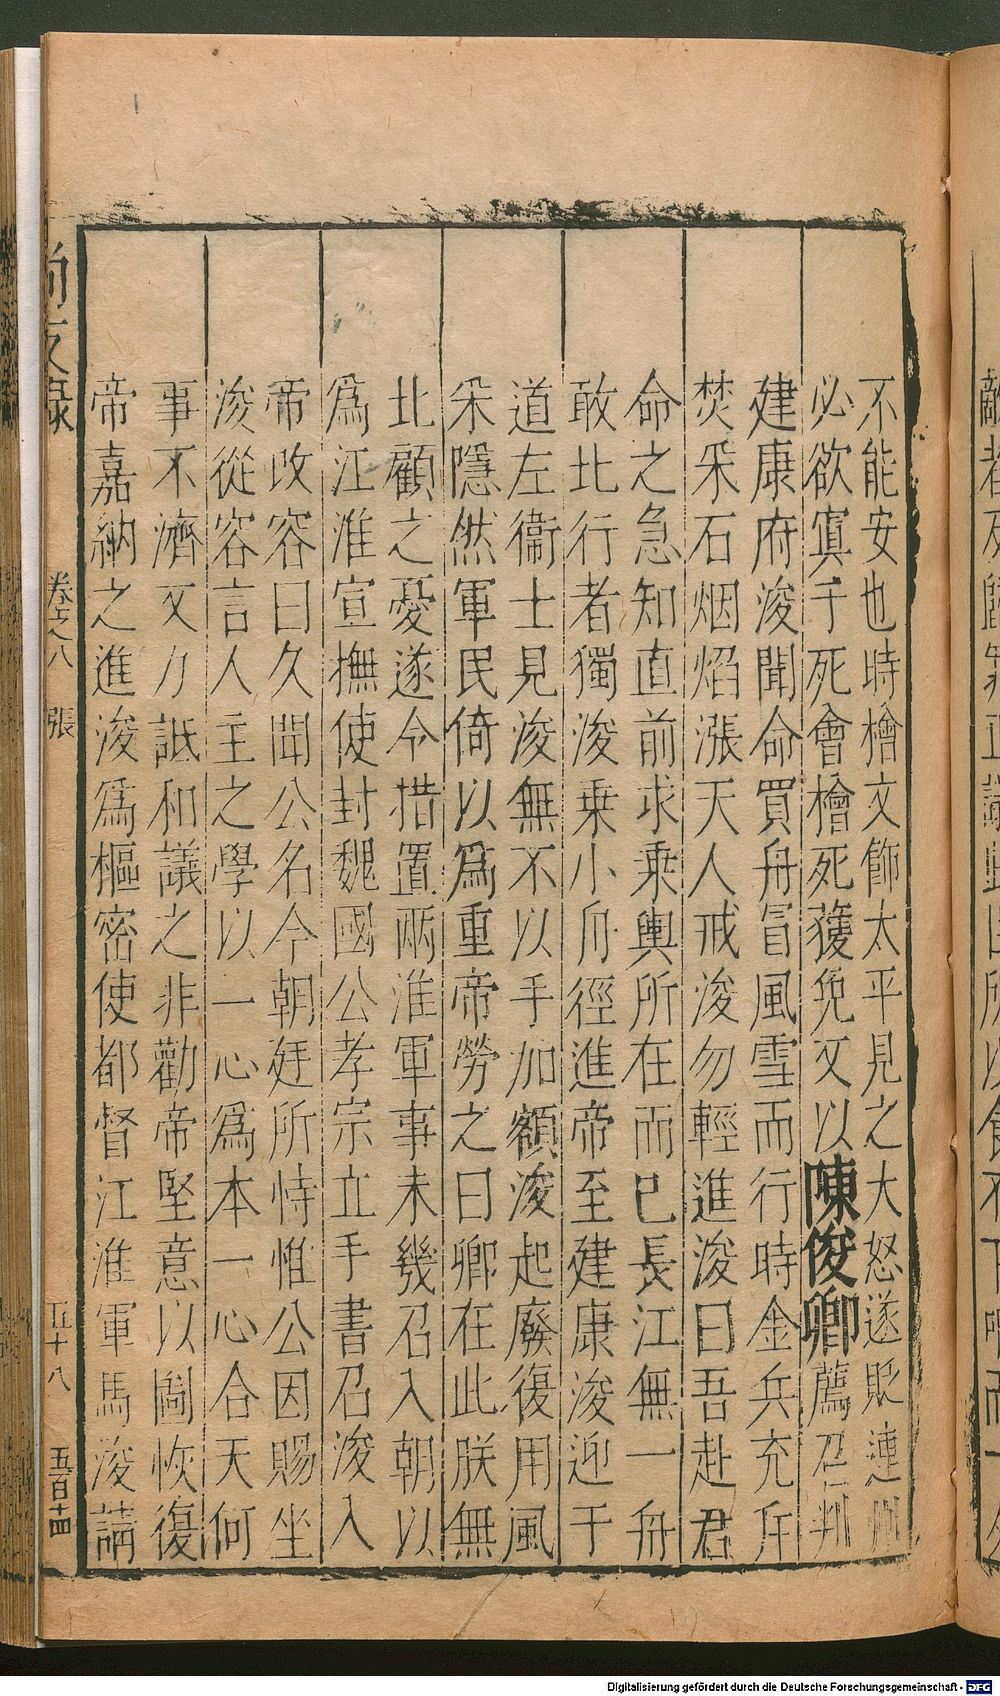 不能安也時檜文飾太平見之大怒遂貶連州
必欲寘手死會檜死獲免又以陳俊卿薦召判
建康府浚聞命買舟冒風雪而行時金兵充斥
焚采石烟焰漲天人戒浚勿輕進浚曰吾赴君
命之急知直前求乗輿所在而已長江無一舟
敢北行者獨浚乗小舟徑進帝至建康浚迎于
道左衛士見浚無不以手加額浚起廢復用風
采隱然軍民倚以爲重帝勞之曰卿在此朕無
北顧之憂遂令措置兩淮軍事未幾召入朝以
爲江淮宣撫使封魏國公孝宗立手書召浚入
帝改容曰久聞公名今朝廷所恃惟公因賜坐
浚從容言人主之學以一心爲本一心合天何
事不濟又力詆和議之非勸帝堅意以圖恢復
帝嘉納之進浚爲樞密使都督江淮軍馬浚請
尚友録 卷之八 張 五十八 五百十四
Digitalisierung gefördert durch die Deutsche Forschungsgemeinschaft - DFG